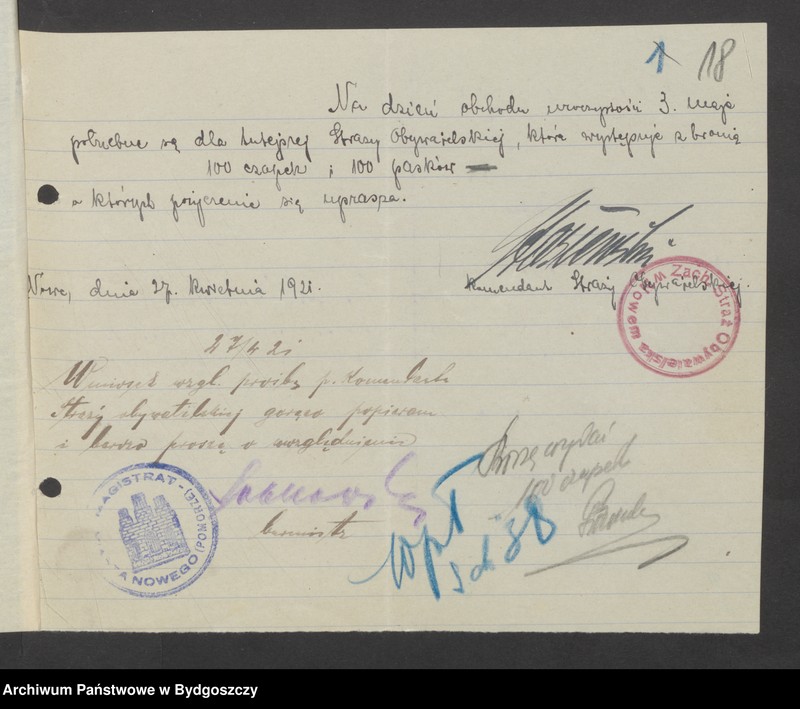 1 18
Na dzień obchodu uroczystości 3. maja
potrzebne są dla tutejszej Straży Obywatelskiej, która występuje z bronią
100 czapek i 100 pasków —
o których pożyczenie się uprasza.
Nowe, dnia 27. kwietnia 1921.
Komendant Straży Obywatelskiej.
Zach. Straż Obywatelska w Nowem
27/4 21
Wniosek wzgl. prośbę p. Komendanta
Straży obywatelskiej gorąco popieram
i bardzo proszę o uwzględnienie
burmistrz
MAGISTRAT MIASTA NOWEGO (POMORZE)
Proszę wydać
100 czapek
38
Archiwum Państwowe w Bydgoszczy